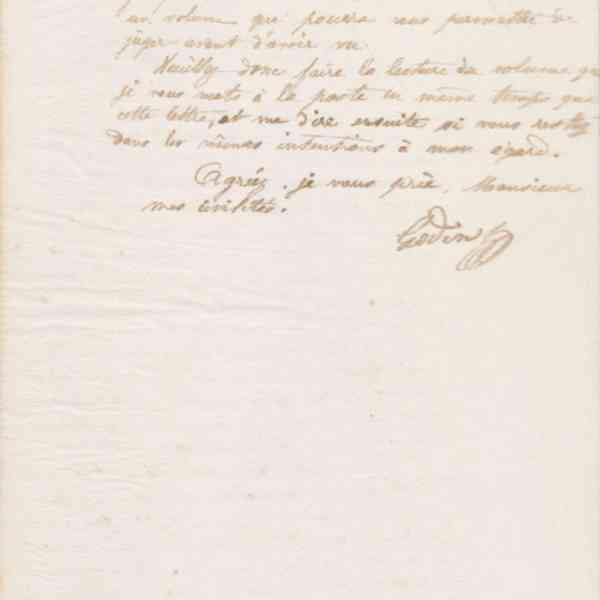 un volume qui pourra vous permettre de
juger avant d'avoir vu.
Veuillez donc faire la lecture du volume que
je vous mets à la poste en même temps que
cette lettre, et me dire ensuite si vous restez
dans les mêmes intentions à mon égard.
Agréez, je vous prie, Monsieur
mes civilités.
Godin